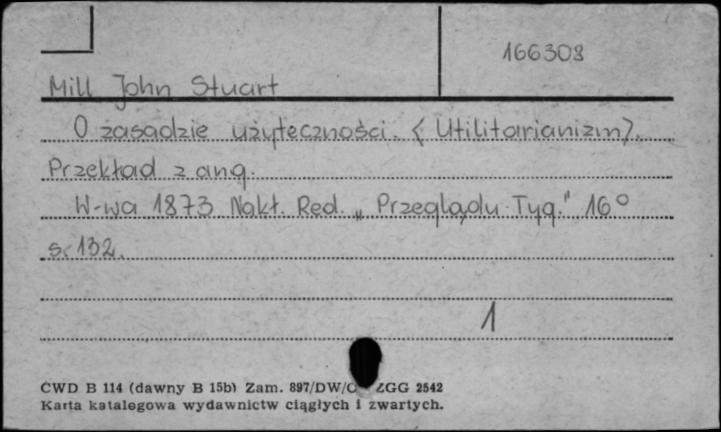 166308
Mill John Stuart
O zasadzie użyteczności. < Utilitarianizm>.
Przekład z ang.
W-wa 1873 Nakł. Red. „Przeglądu Tyg." 16°
s. 132.
1
CWD B 114 (dawny B 15b) Zam. 897/DW/O ZGG 2542
Karta katalogowa wydawnictw ciągłych i zwartych.